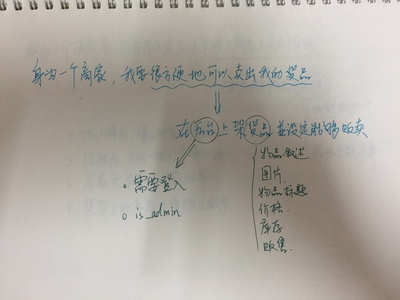 身为一个商家，我要很方便地可以卖出我的货品
在后台上架货品并设定能够贩卖
需要登入
is_admin
物品叙述
图片
物品标题
价格
库存
贩售